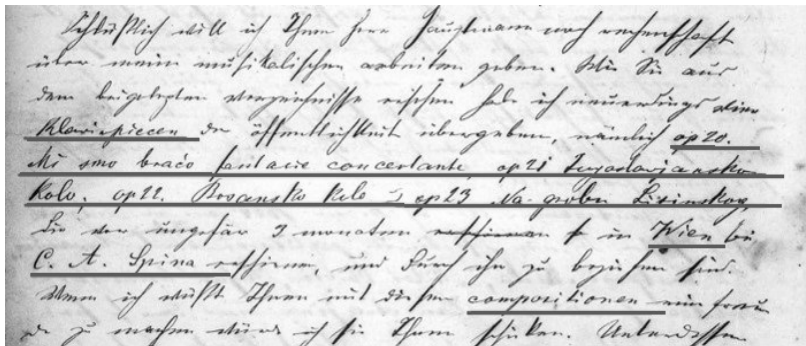 Schließlich will ich Ihnen Herr Hauptmann noch rechenschaft
über meine musikalischen arbeiten geben. Wie Sie aus
dem beigelegten verzeichnisse ersehen habe ich neuerdings vier
Klavierpiecen der öffentlichkeit übergeben, nämlich op 20.
Mi smo braćo fantasie concertante, op 21 Jugoslavjansko
Kolo, op 22. Bosansko kolo op 23 Na grobu Lisinskog,
die vor ungefär 2 monaten in Wien bei
C. A. Spina erschienen, und durch ihn zu beziehen sind.
Wenn ich wüßt Ihnen mit diesen compositionen eine freu
de zu machen würde ich sie Ihnen schicken. Unterdessen